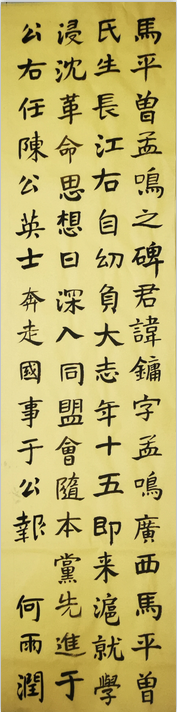 馬平曾孟鳴之碑君諱鏞字孟鳴廣西馬平曾
氏生長江右自幼負大志年十五即来滬就學
浸沈革命思想日深入同盟會隨本黨先進于
公右任陳公英士奔走國事于公報 何雨潤